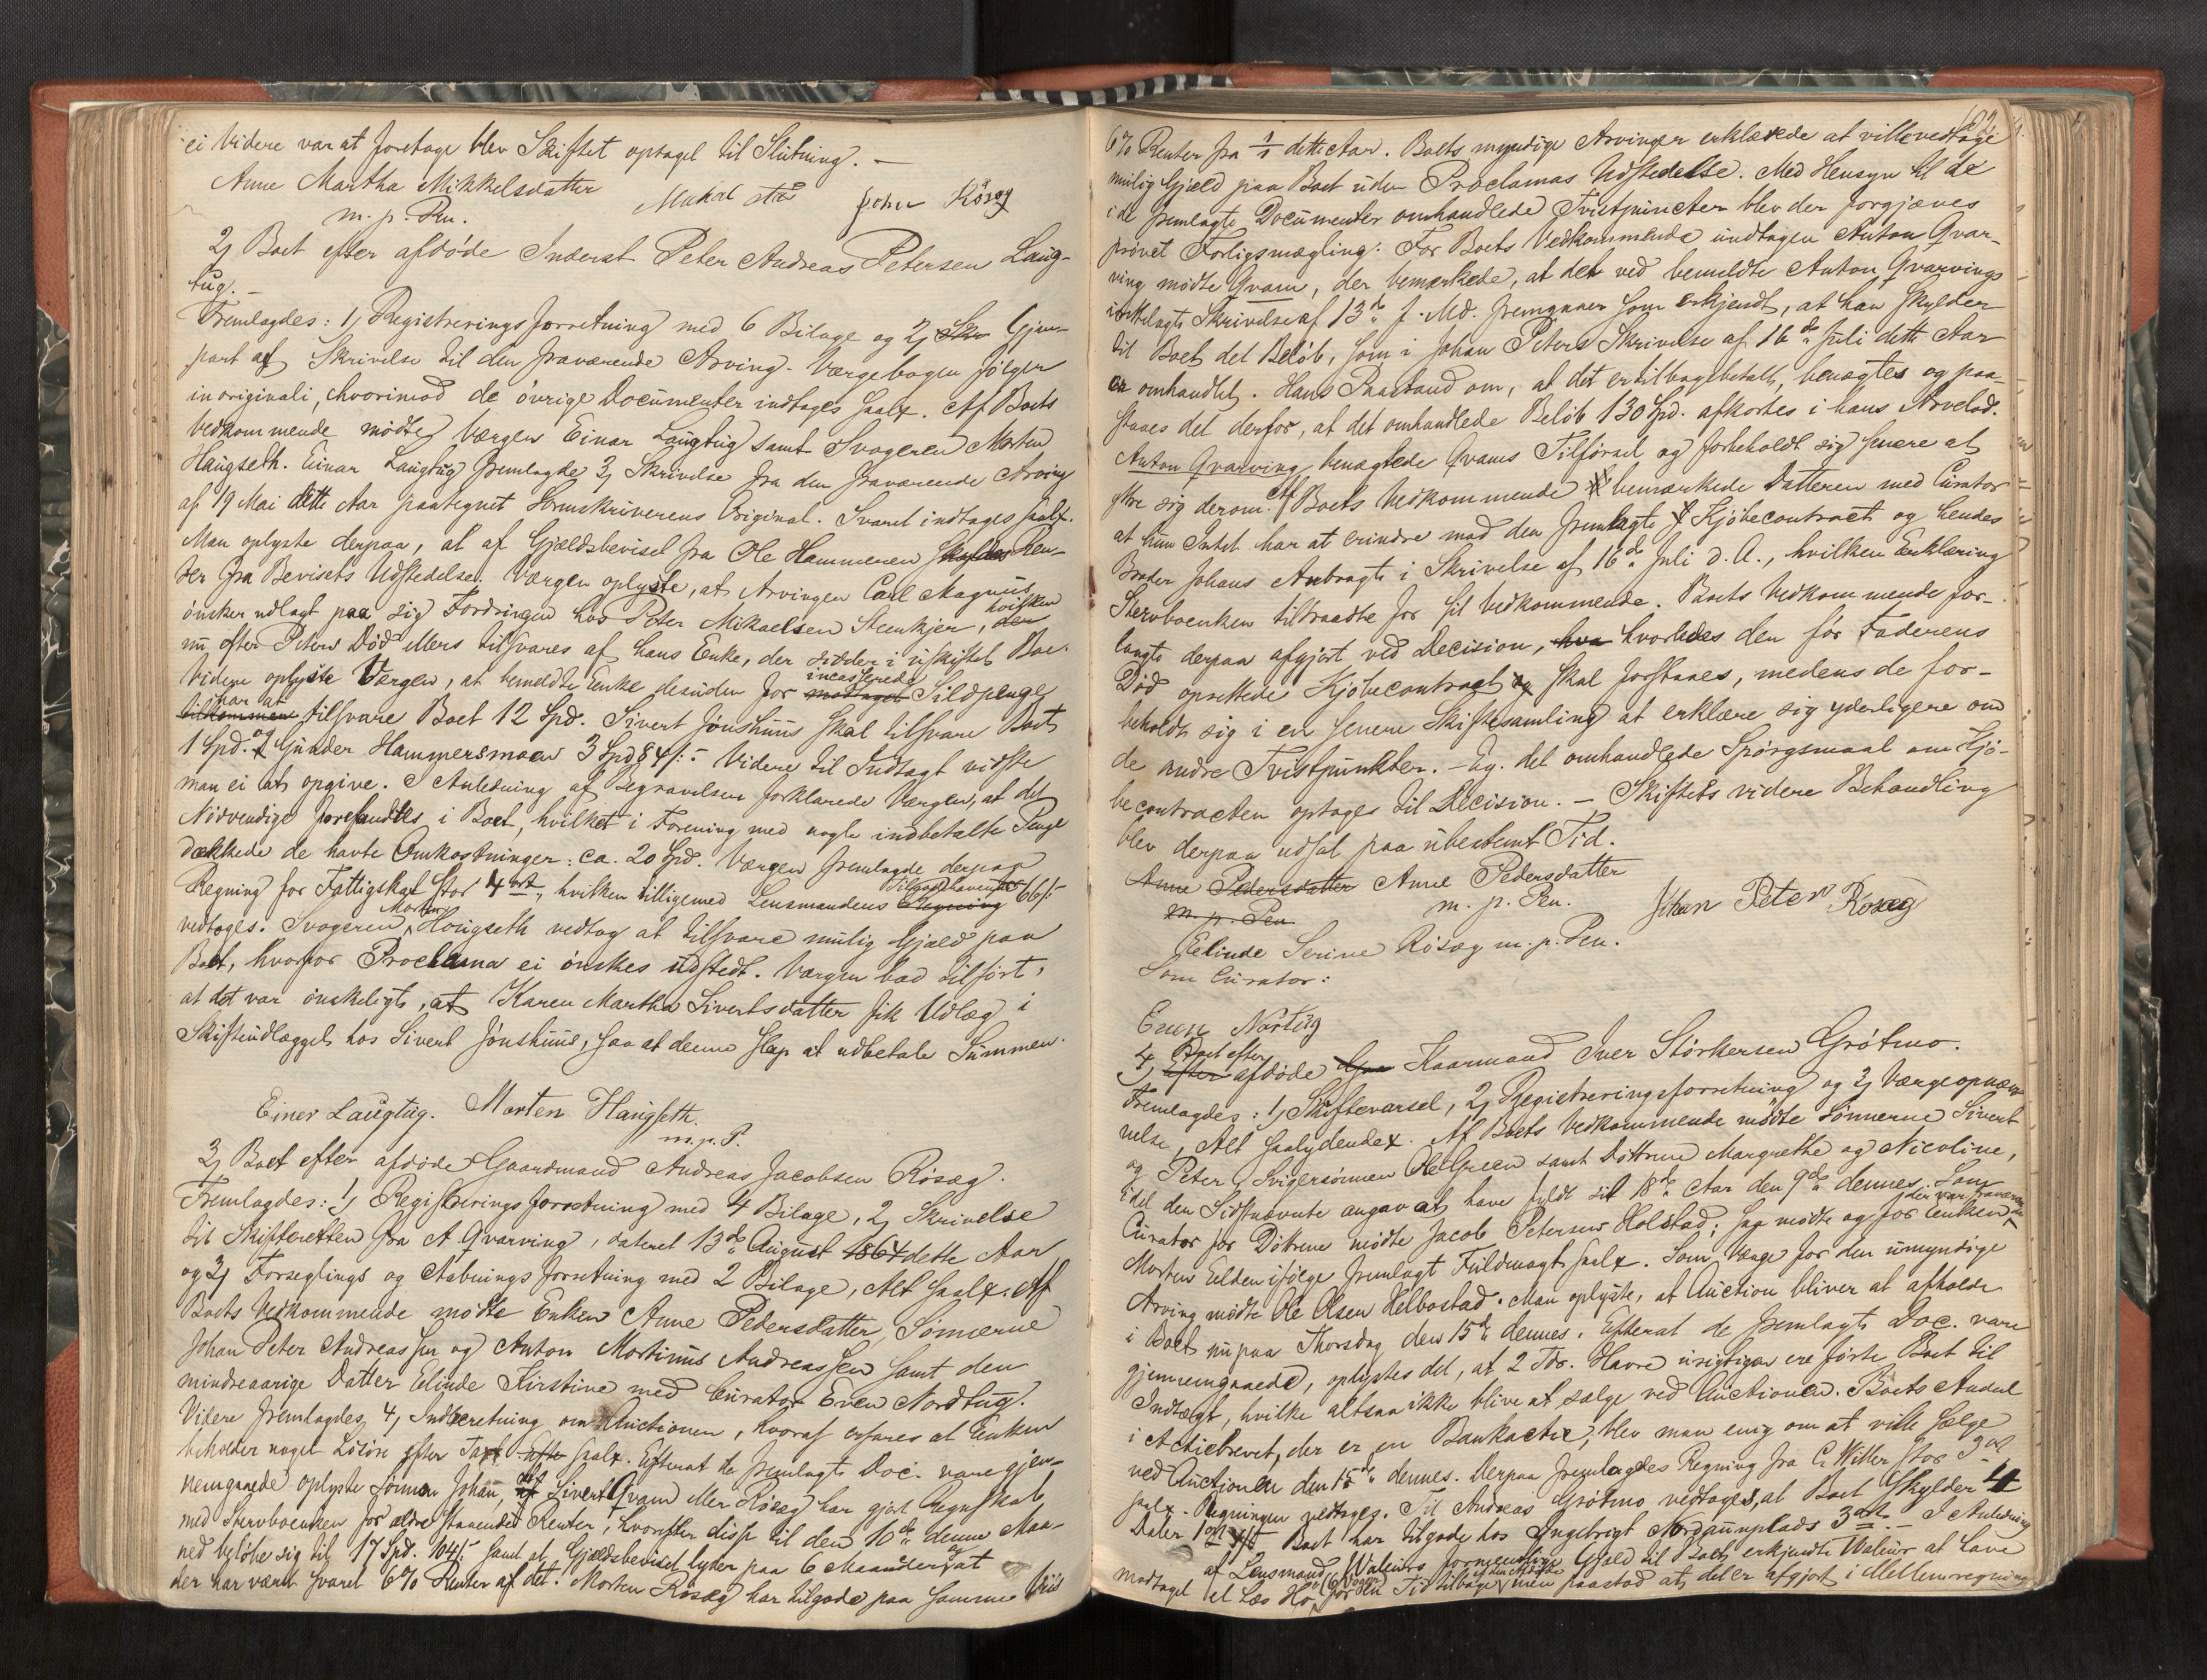 ei Videre var at foretage blev Skiftet optaget til Slutning. –
Anne Martha Mikkelsdatter
m. p. Pen.
John Rösæg
2, Boet efter afdøde Inderst Peter Andreas Petersen Laug-
tug. –
Fremlagdes: 1, Registreringsforretning med 6 Bilage og 2, Skr Gjen-
part af Skrivelse til den fraværende Arving. Værgebogen følger
in originali, hvorimod de øvrige Documenter indtages saalr. Af Boets
Vedkommende mødte Værgen Einar Laugtug samt Svogeren Morten
Haugseth. Einar Laugtug fremlagde 3, Skrivelse fra den fraværende Arving
af 19 Mai dette Aar paategnet Sorenskriverens Original. Svaret indtages saalr.
Man oplyste derpaa, at af Gjældsbeviset fra Ole Hammeren skyldes Ren-
ter fra Bevisets Udstedelse. Værgen oplyste, at Arvingen Carl Magnus
ønsker udlagt paa sig Fordringen hos Peter Mikaelsen Steenkjer, den hvilken
nu efter Peters Død ellers tilsvares af hans Enke, der sidder i uskiftet Bo.
Videre oplyste Værgen, at bemeldte Enke desuden for modtaget incasserede Sildpenge
tilkommer har at tilsvare Boet 12 Spd. Sivert Jønshuus skal tilsvare Boet
1 Spd. og Gunder Hammersmoen 3 Spd 84 s. – Videre til Indtægt vidste
man ei at opgive. I Anledning af Begravelsen forklarede Værgen, at det
Nødvendige forefandtes i Boet, hvilket i Forening med nogle indbetalte Penge
dækkede de havte Omkostninger: ca. 20 Spd. Værgen fremlagde derpaa
Regning for Fattigskat stor 4 ort, hvilken tilligemed Lensmandens Regning Tilgodehavende 66 s.
vedtoges. Svogeren Morten Hougseth vedtog at tilsvare mulig Gjæld paa
Boet, hvorfor Proclama ei ønskes udstedt. Værgen bad tilført,
at det var ønskeligt, at Karen Martha Sivertsdatter fik Udlæg i
Skifteudlægget hos Sivert Jønshuus, saa at denne slap at udbetale Summen.
Einer Laugtug. Morten Haugseth.
m. p. P.
3, Boet efter afdøde Gaardmand Andreas Jacobsen Rösæg.
Fremlagdes: 1, Registreringsforretning med 4 Bilage, 2, Skrivelse
til Skifteretten fra A. Qvarving, dateret 13de August 1864 dette Aar
og 3, Forseglings og Aabningsforretning med 2 Bilage, Alt saalr. Af
Boets Vedkommende mødte Enken Anne Pedersdatter, Sønnerne
Johan Peter Andreassen og Anton Martinus Andreassen samt den
mindreaarige Datter Elinde Kirstine med Curator Even Nordtug.
Videre fremlagdes 4, Indberetning om Auctionen, hvoraf erfares at Enken
beholder noget Løsøre efter Taxt. Efte saalr. Efterat de fremlagte Doc. vare gjen-
nemgaaede oplyste Sønnen Johan, at Sivert Qvam eller Rösæg har gjort Regnskab
med Stervboenken for ældre staaende Renter, hvorefter disse til den 10de denne Maa-
ned beløbe sig til 17 Spd. 104 s. samt at Gjældsbeviset lyder paa 6 Maaneder og at
der har været svaret 6% Renter af det. Morten Rösæg har tilgode paa samme Viis
6% Renter fra 1/1 dette Aar. Boets myndige Arvinger erklærede at ville vedtage
mulig Gjæld paa Boet uden Proclamas Udstedelse. Med Hensyn til de
i de fremlagte Documenter omhandlede Tvistpuncter blev der forgjæves
prøvet Forligsmægling. For Boets Vedkommende undtagen Anton Qvar-
ving mødte Qvam, der bemærkede, at det ved bemeldte Anton Qvarvings
indlagte Skrivelse af 13de f. Md. fremgaaer som erkjendt, at han skylder
til Boet det Beløb, som i Johan Peters Skrivelse af 16de Juli dette Aar
er omhandlet. Hans Paastand om, at det er tilbagebetalt, benægtes og paa-
staaes det derfor, at det omhandlede Beløb 130 Spd. afkortes i hans Arvelod.
Anton Qvarving benægtede Qvams Tilførsel og forbeholdt sig senere at
yttre sig derom. Af Boets Vedkommende bemærkede Datteren med Curator
at hun Intet har at erindre mod den fremlagte Kjøbecontract og hendes
Broder Johans Anbragte i Skrivelse af 16de Juli d. A., hvilken Erklæring
Stervboenken tiltraadte for sit Vedkommende. Boets Vedkommende for-
langte derpaa afgjort ved Decision, hva hvorledes den før Faderens
Død oprettede Kjøbecontract og skal forstaaes, medens de for-
beholdt sig i en senere Skiftesamling at erklære sig yderligere om
de andre Tvistpunkter. – Eg. det omhandlede Spørgsmaal om Kjø-
becontracten optages til Decision. – Skiftets videre Behandling
blev derpaa udsat paa ubestemt Tid.
Anne Pedersdatter Anne Pedersdatter
m. p. Pen. m. p. Pen. Johan Peter Rosæg
Elinde Serine Rösæg m. p. Pen.
Som Curator:
Even Nortug
4, efter Boet efter afdøde Gaa Kaarmand Iver Störkersen Grötmo.
Fremlagdes: 1, Skiftevarsel, 2, Registreringsforretning og 3, Værgeopnæv-
nelse, Alt saalydende. Af Boets Vedkommende mødte Sønnerne Sivert
og Peter, Svigersønnen Ole Green samt Døttrene Margrethe og Nicoline,
idet den Sidstnævnte angav at have fyldt sit 18de Aar den 9de dennes. Som
Curator for Døttrene mødte Jacob Petersen Holstad; og mødte og for Enken der var fraværende
Morten Eelden ifølge fremlagt Fuldmagt saalr. Som Værge for den umyndige
Arving mødte Ole Olsen Helbostad. Man oplyste, at Auction bliver at afholde
i Boet nu paa Thorsdag den 15de dennes. Efterat de fremlagte Doc. vare
gjennemgaaede, oplystes det, at 2 Tdr. Havre urigtigen ere førte Boet til
Indtægt, hvilke altsaa ikke blive at sælge ved Auctionen. Boets Andeel
i Actiebrevet, der er en Bankactie, blev man enig om at ville sælge
ved Auctionen den 15de dennes. Derpaa fremlagdes Regning fra C. Witter stor 3 ort
saalr. Regningen vedtoges. Til Andreas Grötmo vedtoges, at Boet skylder 4
Daler 1 ort. Boet har tilgode hos Ingebrigt Nordaunplads 3 ort. – I Anledning
af Lensmand Waleurs formentlige Gjæld til Boet erkjendte Waleur at have
modtaget et Læs Hø (6 Voger) for en Tid tilbage, men paastod at det er afgjort i Mellemregning